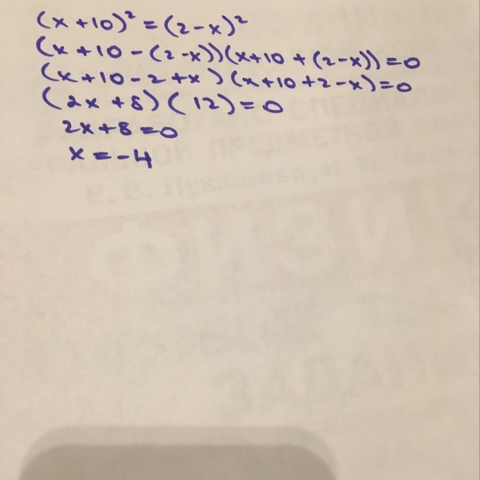 (x+10)² = (2-x)²
(x+10-(2-x))(x+10+(2-x))=0
(x+10-2+x)(x+10+2-x)=0
(2x+8)(12)=0
2x+8=0
x=-4